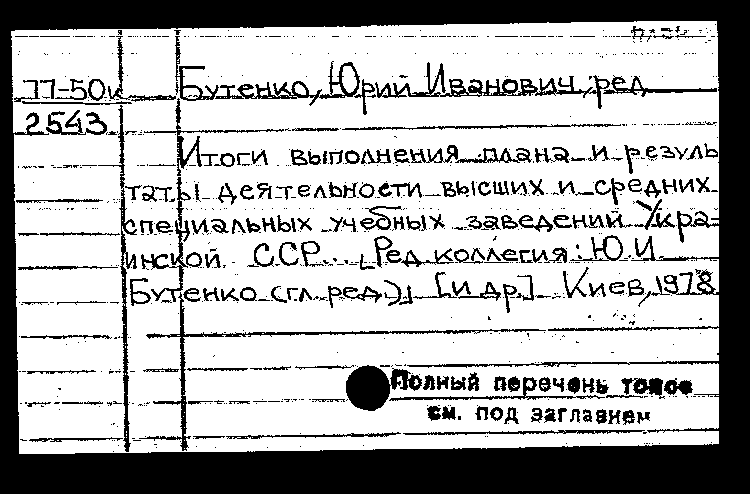 77-50к Бутенко, Юрий Иванович, ред
2543
Итоги выполнения плана и резуль
таты деятельности высших и средних
специальных учебных заведений Укра-
инской ССР... [Ред. коллегия: Ю.И.
Бутенко (гл. ред.)] [и др.] Киев, 1978
Полный перечень томов
см. под заглавием